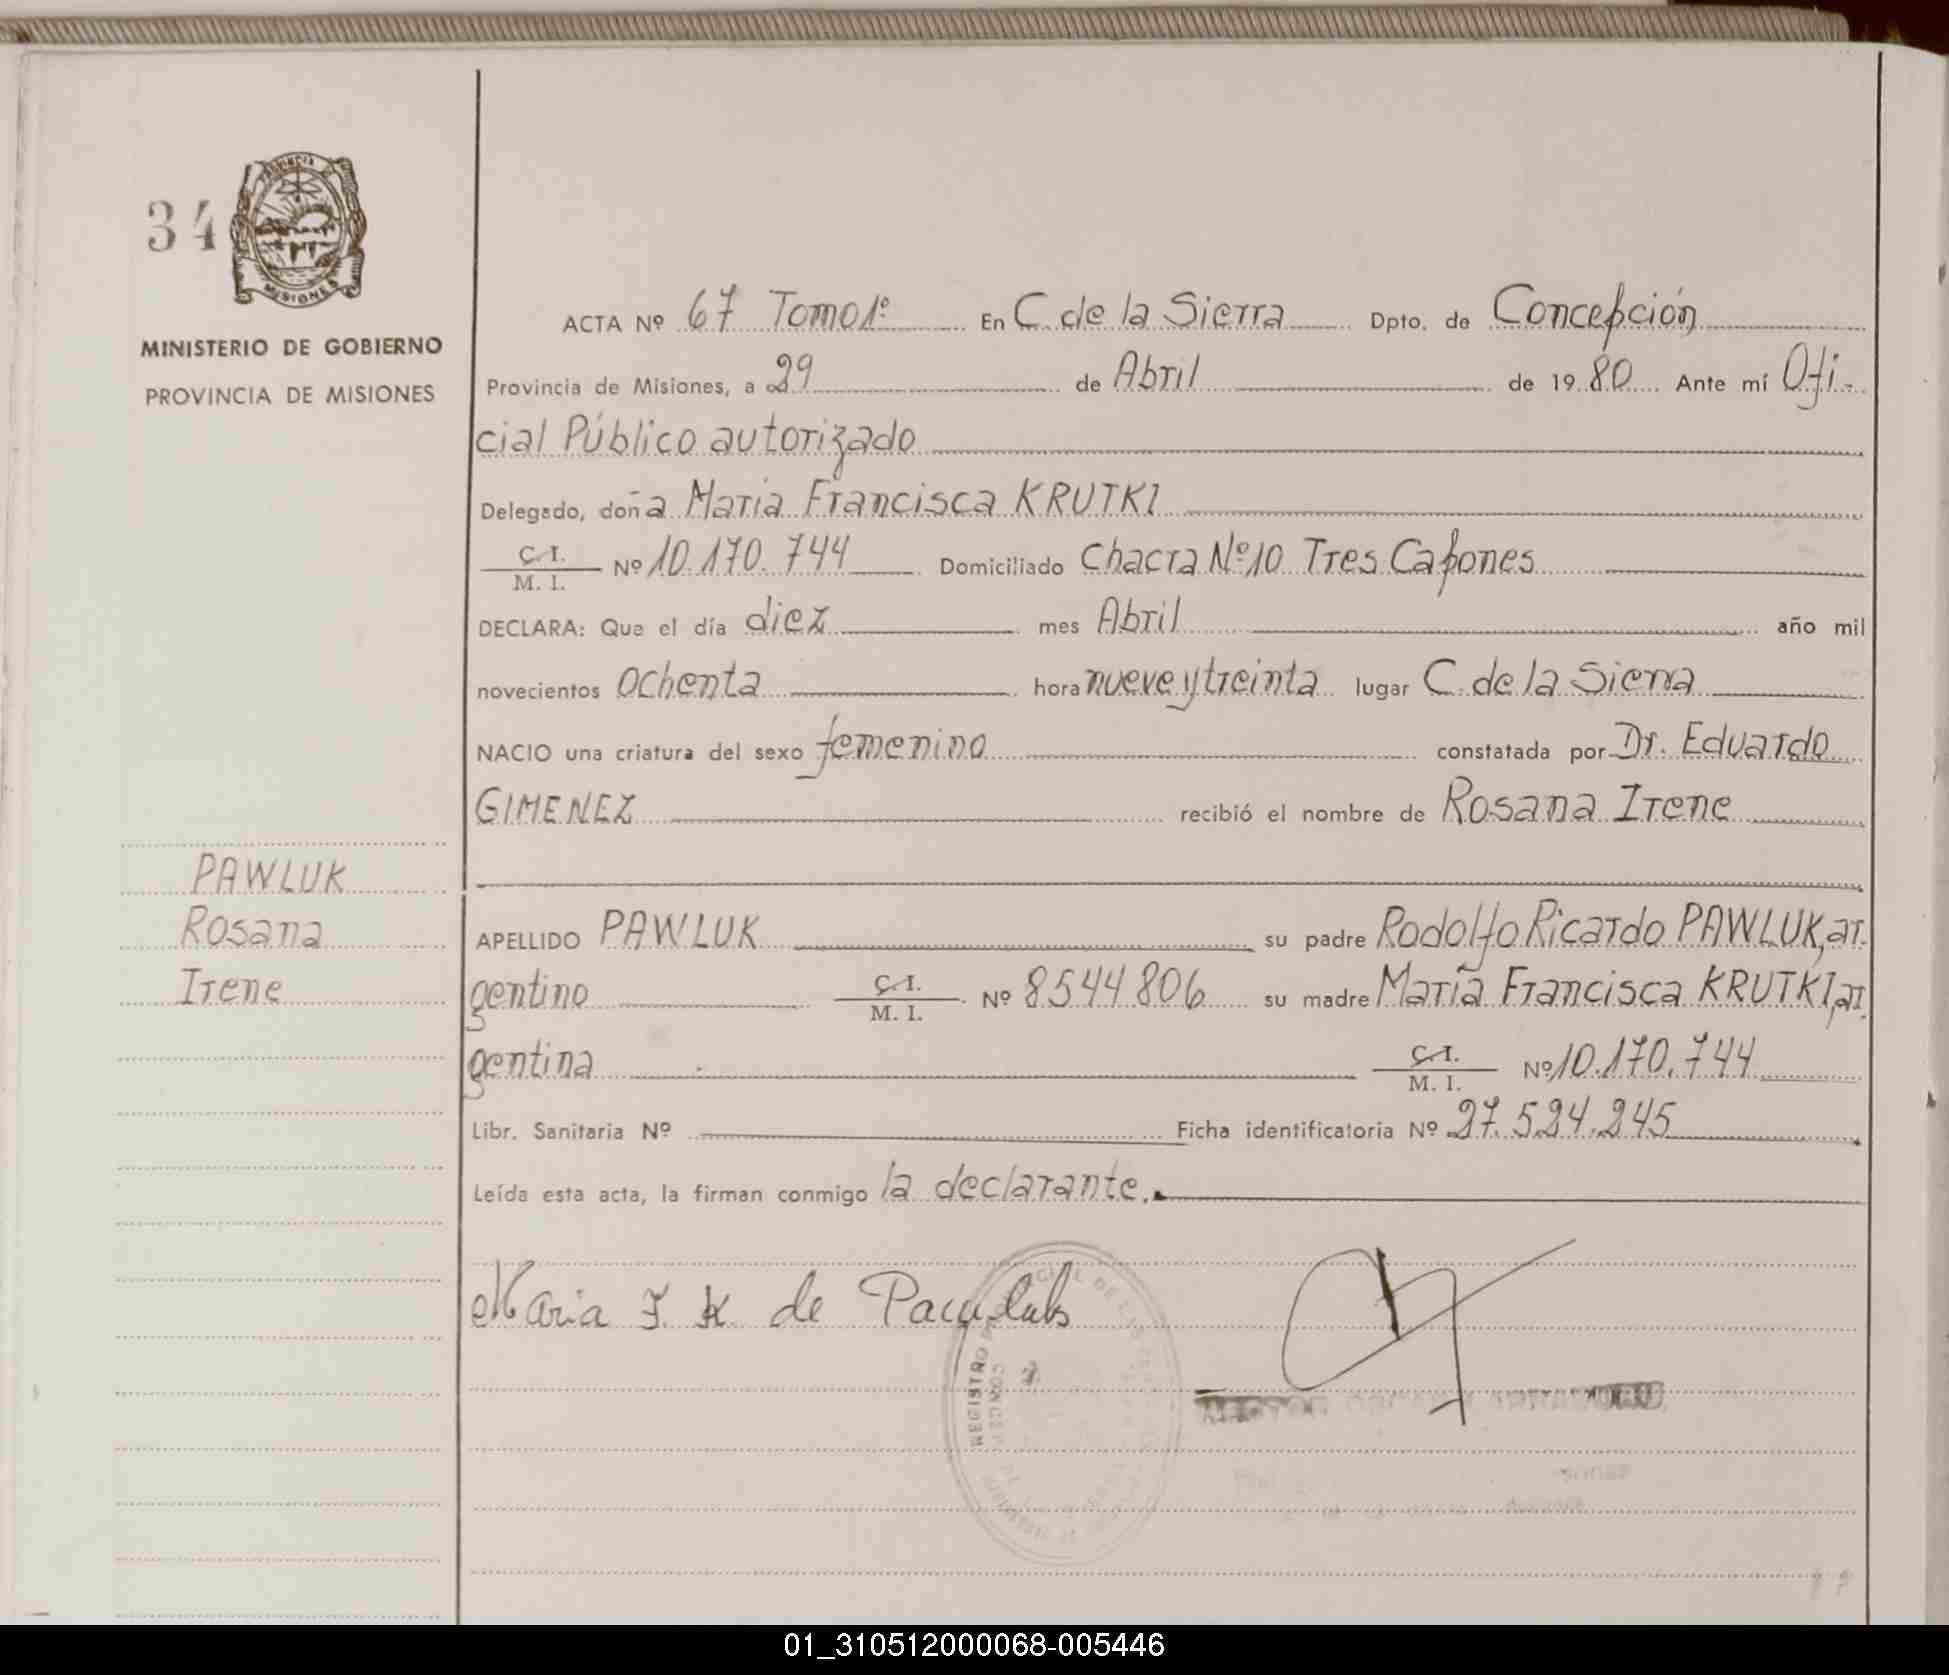 34
PROVINCIA
MISIONES
MINISTERIO DE GOBIERNO
PROVINCIA DE MISIONES
ACTA Nº 67 Tomo 1º En C. de la Sierra Dpto. de Concepción
Provincia de Misiones, a 29 de Abril de 1980 Ante mí Ofi-
cial Público autorizado
Delegado, doña María Francisca KRUTKI
C.I. / M. I. Nº 10.170.744 Domiciliado Chacra Nº 10 Tres Capones
DECLARA: Que el día diez mes Abril año mil
novecientos ochenta hora nueve y treinta lugar C. de la Sierra
NACIO una criatura del sexo femenino constatada por Dr. Eduardo
GIMENEZ recibió el nombre de Rosana Irene
PAWLUK
Rosana
Irene
APELLIDO PAWLUK su padre Rodolfo Ricardo PAWLUK, ar-
gentino C.I. / M. I. Nº 8544806 su madre María Francisca KRUTKI, ar-
gentina C.I. / M. I. Nº 10.170.744
Libr. Sanitaria Nº Ficha identificatoria Nº 27.524.245
Leída esta acta, la firman conmigo la declarante.
Maria F. K. de Pawluk
REGISTRO
01_310512000068-005446